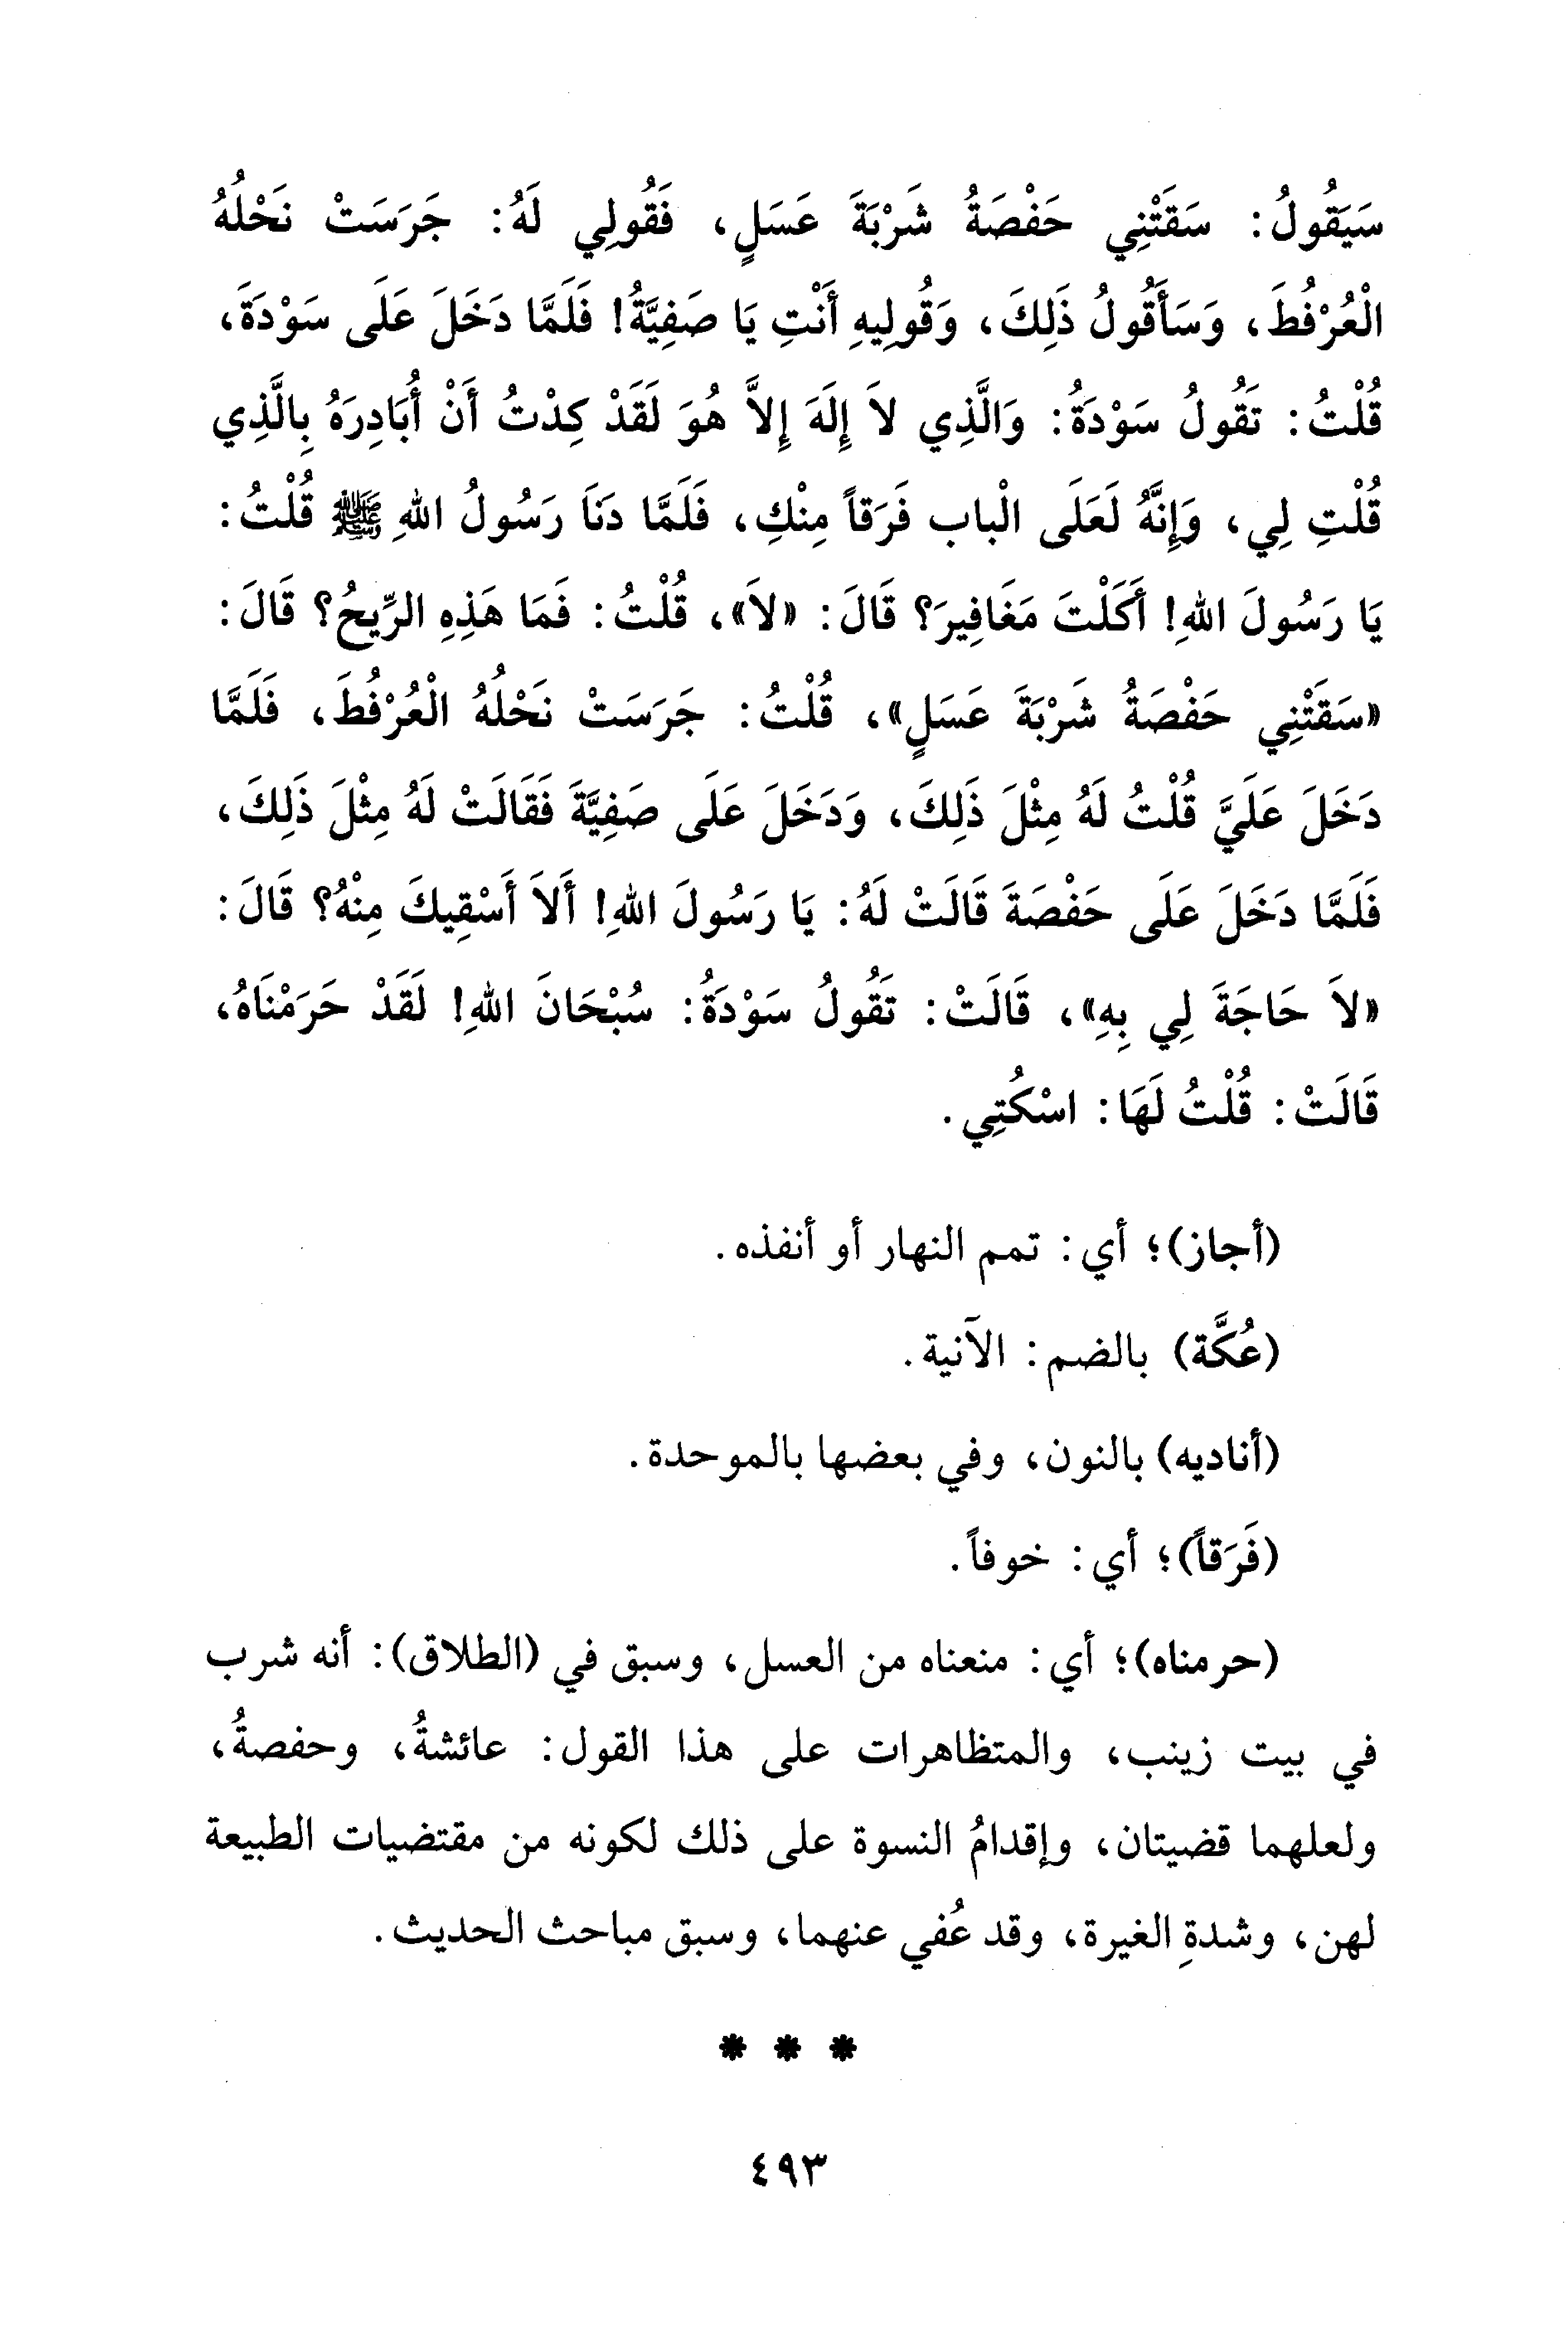 سَيَقُولُ: سَقَتْنِي حَفْصَةُ شَرْبَةَ عَسَلٍ، فَقُولِي لَهُ: جَرَسَتْ نَحْلُهُ
الْعُرْفُطَ، وَسَأَقُولُ ذَلِكَ، وَقُولِيهِ أَنْتِ يَا صَفِيَّةُ! فَلَمَّا دَخَلَ عَلَى سَوْدَةَ،
قُلْتُ: تَقُولُ سَوْدَةُ: وَالَّذِي لاَ إِلَهَ إِلاَّ هُوَ لَقَدْ كِدْتُ أَنْ أُبَادِرَهُ بِالَّذِي
قُلْتِ لِي، وَإِنَّهُ لَعَلَى الْباب فَرَقاً مِنْكِ، فَلَمَّا دَنَا رَسُولُ اللهِ ﷺ قُلْتُ:
يَا رَسُولَ اللهِ! أَكَلْتَ مَغَافِيرَ؟ قَالَ: «لاَ»، قُلْتُ: فَمَا هَذِهِ الرِّيحُ؟ قَالَ:
«سَقَتْنِي حَفْصَةُ شَرْبَةَ عَسَلٍ»، قُلْتُ: جَرَسَتْ نَحْلُهُ الْعُرْفُطَ، فَلَمَّا
دَخَلَ عَلَيَّ قُلْتُ لَهُ مِثْلَ ذَلِكَ، وَدَخَلَ عَلَى صَفِيَّةَ فَقَالَتْ لَهُ مِثْلَ ذَلِكَ،
فَلَمَّا دَخَلَ عَلَى حَفْصَةَ قَالَتْ لَهُ: يَا رَسُولَ اللهِ! أَلاَ أَسْقِيكَ مِنْهُ؟ قَالَ:
«لاَ حَاجَةَ لِي بِهِ»، قَالَتْ: تَقُولُ سَوْدَةُ: سُبْحَانَ اللهِ! لَقَدْ حَرَمْنَاهُ،
قَالَتْ: قُلْتُ لَهَا: اسْكُتِي.
(أجاز)؛ أي: تمم النهار أو أنفذه.
(عُكَّة) بالضم: الآنية.
(أناديه) بالنون، وفي بعضها بالموحدة.
(فَرَقاً)؛ أي: خوفاً.
(حرمناه)؛ أي: منعناه من العسل، وسبق في (الطلاق): أنه شرب
في بيت زينب، والمتظاهرات على هذا القول: عائشةُ، وحفصةُ،
ولعلهما قضيتان، وإقدامُ النسوة على ذلك لكونه من مقتضيات الطبيعة
لهن، وشدةِ الغيرة، وقد عُفي عنهما، وسبق مباحث الحديث.
* * *
٤٩٣